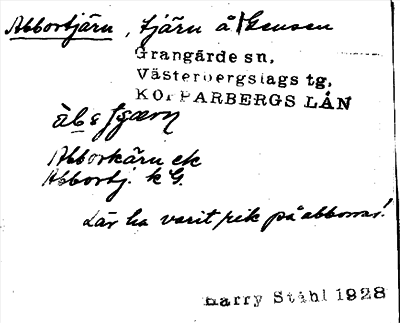 Abbortjärn, tjärn å Gensen
Grangärde sn,
Västerbergslags tg,
KOPPARBERGS LÄN
Abborkärn ek
Abbortj. kG.
Lär ha varit rik på abborrar!
Harry Ståhl 1928